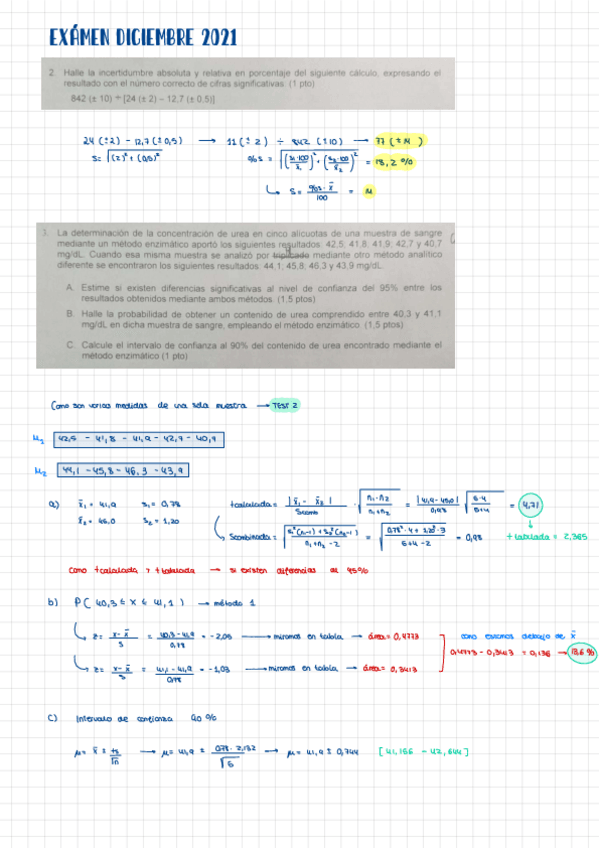 EXÁMEN DICIEMBRE 2021
2. Halle la incertidumbre absoluta y relativa en porcentaje del siguiente cálculo, expresando el
resultado con el número correcto de cifras significativas. (1 pto)
842 (± 10) ÷ [24 (± 2) – 12,7 (± 0,5)]
24 (±2) – 12,7 (±0,5) → 11 (±2) ÷ 842 (±10) → 77 (±14)
s = √(2)² + (0,5)² %s = √(s₁·100/x̄₁)² + (s₂·100/x̄₂)² = 18,2 %
↳ s = %s · x̄ / 100 = 14
3. La determinación de la concentración de urea en cinco alícuotas de una muestra de sangre
mediante un método enzimático aportó los siguientes resultados: 42,5; 41,8; 41,9; 42,7 y 40,7
mg/dL. Cuando esa misma muestra se analizó por triplicado mediante otro método analítico
diferente se encontraron los siguientes resultados: 44,1; 45,8; 46,3 y 43,9 mg/dL.
A. Estime si existen diferencias significativas al nivel de confianza del 95% entre los
resultados obtenidos mediante ambos métodos. (1,5 ptos)
B. Halle la probabilidad de obtener un contenido de urea comprendido entre 40,3 y 41,1
mg/dL en dicha muestra de sangre, empleando el método enzimático. (1,5 ptos)
C. Calcule el intervalo de confianza al 90% del contenido de urea encontrado mediante el
método enzimático (1 pto)
Como son varias medidas de una sola muestra → TEST 2
M₁ 42,5 – 41,8 – 41,9 – 42,7 – 40,7
M₂ 44,1 – 45,8 – 46,3 – 43,9
a) x̄₁ = 41,9 s₁ = 0,78 tcalculada = |x̄₁ – x̄₂| / Scomb · √n₁·n₂ / n₁+n₂ = |41,9 – 45,0| / 0,98 √5·4 / 5+4 = 4,71
x̄₂ = 45,0 s₂ = 1,20
↳ Scombinada = √s₁²(n₁–1) + s₂²(n₂–1) / n₁+n₂–2 = √0,78²·4 + 1,20²·3 / 5+4–2 = 0,98 t tabulada = 2,365
Como tcalculada > t tabulada → si existen diferencias al 95%
b) P( 40,3 ≤ x ≤ 41,1 ) → método 1
↳ z = x – x̄ / s = 40,3 – 41,9 / 0,78 = –2,05 → miramos en tabla → área = 0,4773 como estamos debajo de x̄
0,4773 – 0,3413 = 0,136 → 13,6 %
↳ z = x – x̄ / s = 41,1 – 41,9 / 0,78 = –1,03 → miramos en tabla → área = 0,3413
c) Intervalo de confianza 90 %
μ = x̄ ± ts / √n → μ = 41,9 ± 0,78 · 2,132 / √5 → μ = 41,9 ± 0,744 [41,156 – 42,644]